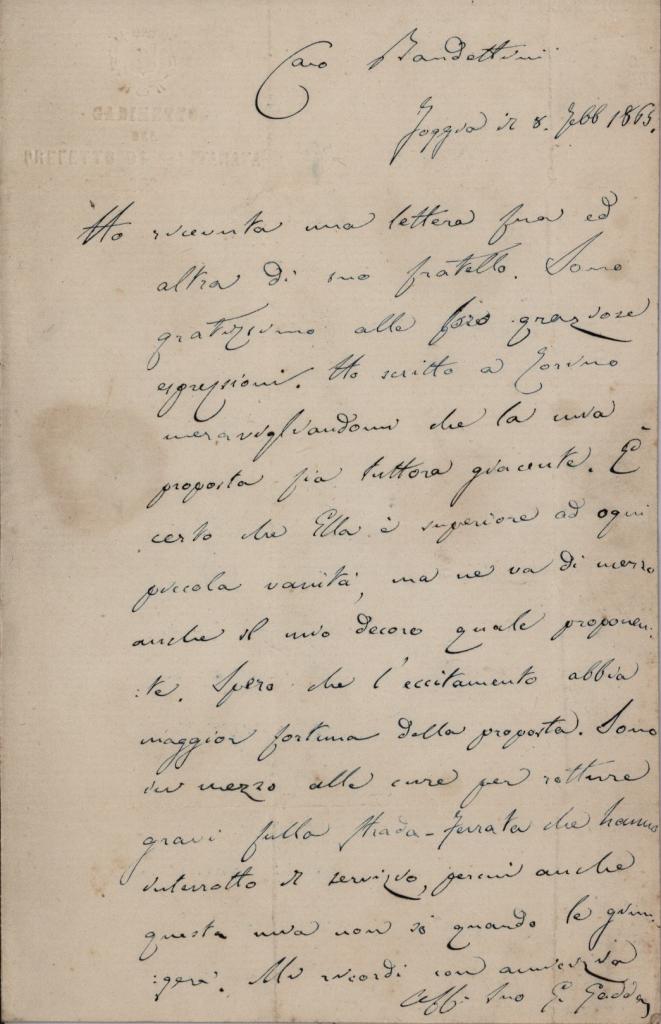 GABINETTO
DEL
PREFETTO DI CAPITANATA
Caro Bandettini
Foggia il 8. Febb 1865.
Ho ricevuta una lettera sua ed
altra di suo fratello. Sono
gratissimo alle loro graziose
espressioni. Ho scritto a Torino
meravigliandomi che la mia
proposta sia tuttora giacente. È
certo che Ella è superiore ad ogni
piccola vanità, ma ne va di mezzo
anche il mio decoro quale proponen:
:te. Spero che l'eccitamento abbia
maggior fortuna della proposta. Sono
in mezzo alle cure per rotture
gravi sulla strada-ferrata che hanno
interrotto il servizio, perciò anche
questa mia non so quando le giun:
:gerà. Mi ricordi con amicizia
Aff. Suo G. Gadda